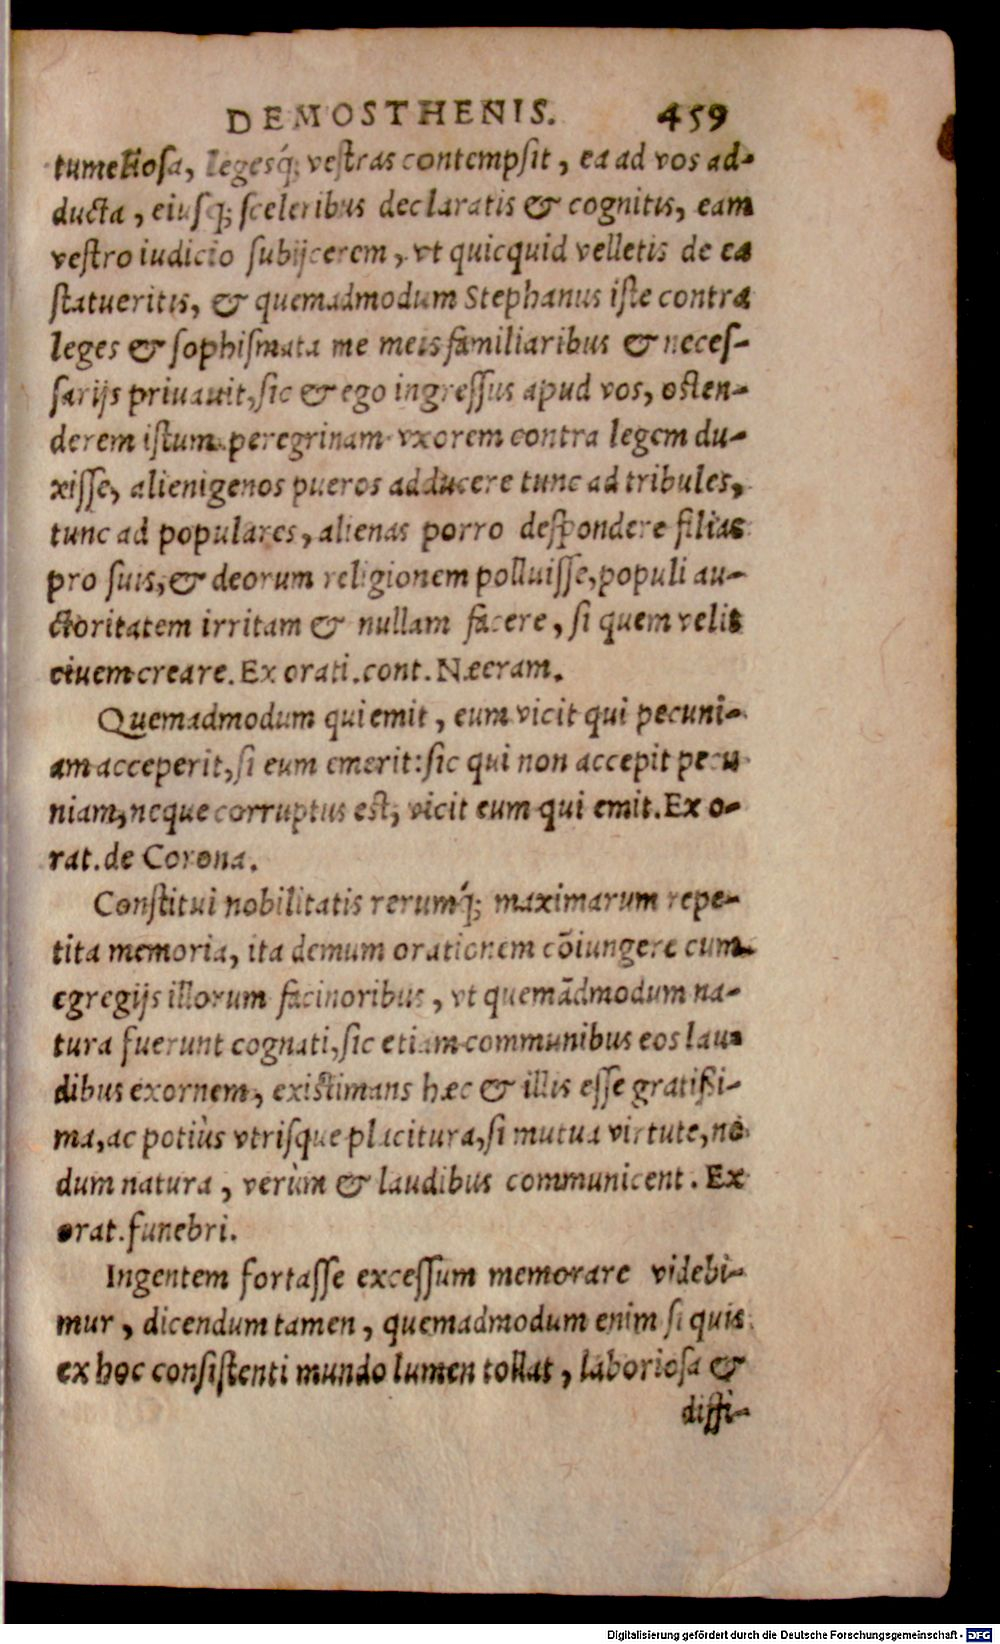 DEMOSTHENIS. 459
tumeliosa, legesq́; vestras contempsit, ea ad vos ad-
ducta, eiusq; sceleribus declaratis & cognitis, eam
vestro iudicio subijcerem, vt quicquid velletis de ea
statueritis, & quemadmodum Stephanus iste contra
leges & sophismata me meis familiaribus & neces-
sarijs priuauit, sic & ego ingressus apud vos, osten-
derem istum peregrinam vxorem contra legem du-
xisse, alienigenos pueros adducere tunc ad tribules,
tunc ad populares, alienas porro despondere filias
pro suis, & deorum religionem polluisse, populi au-
ctoritatem irritam & nullam facere, si quem velit
ciuem creare. Ex orati. cont. Næeram.
Quemadmodum qui emit, eum vicit qui pecuni-
am acceperit, si eum emerit: sic qui non accepit pecu
niam, neque corruptus est, vicit eum qui emit. Ex o-
rat. de Corona.
Constitui nobilitatis rerumq́; maximarum repe-
tita memoria, ita demum orationem cõiungere cum
egregijs illorum facinoribus, vt quemãdmodum na-
tura fuerunt cognati, sic etiam communibus eos lau-
dibus exornem, existimans hæc & illis esse gratissi-
ma, ac potiùs vtrisque placitura, si mutua virtute, nõ
dum natura, verùm & laudibus communicent. Ex
orat. funebri.
Ingentem fortasse excessum memorare videbi-
mur, dicendum tamen, quemadmodum enim si quis
ex hoc consistenti mundo lumen tollat, laboriosa &
diffi-
Digitalisierung gefördert durch die Deutsche Forschungsgemeinschaft - DFG